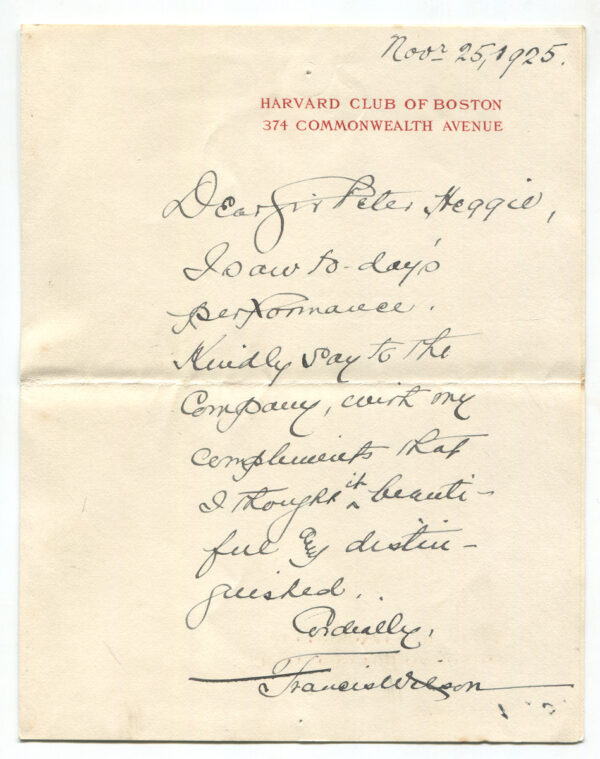 Novr 25, 1925.
HARVARD CLUB OF BOSTON
374 COMMONWEALTH AVENUE
Dear Sir Peter Heggie,
I saw to-day's
performance.
Kindly say to the
Company, with my
compliments that
I thought it beauti-
ful & distin-
guished.
Cordially,
Francis Wilson